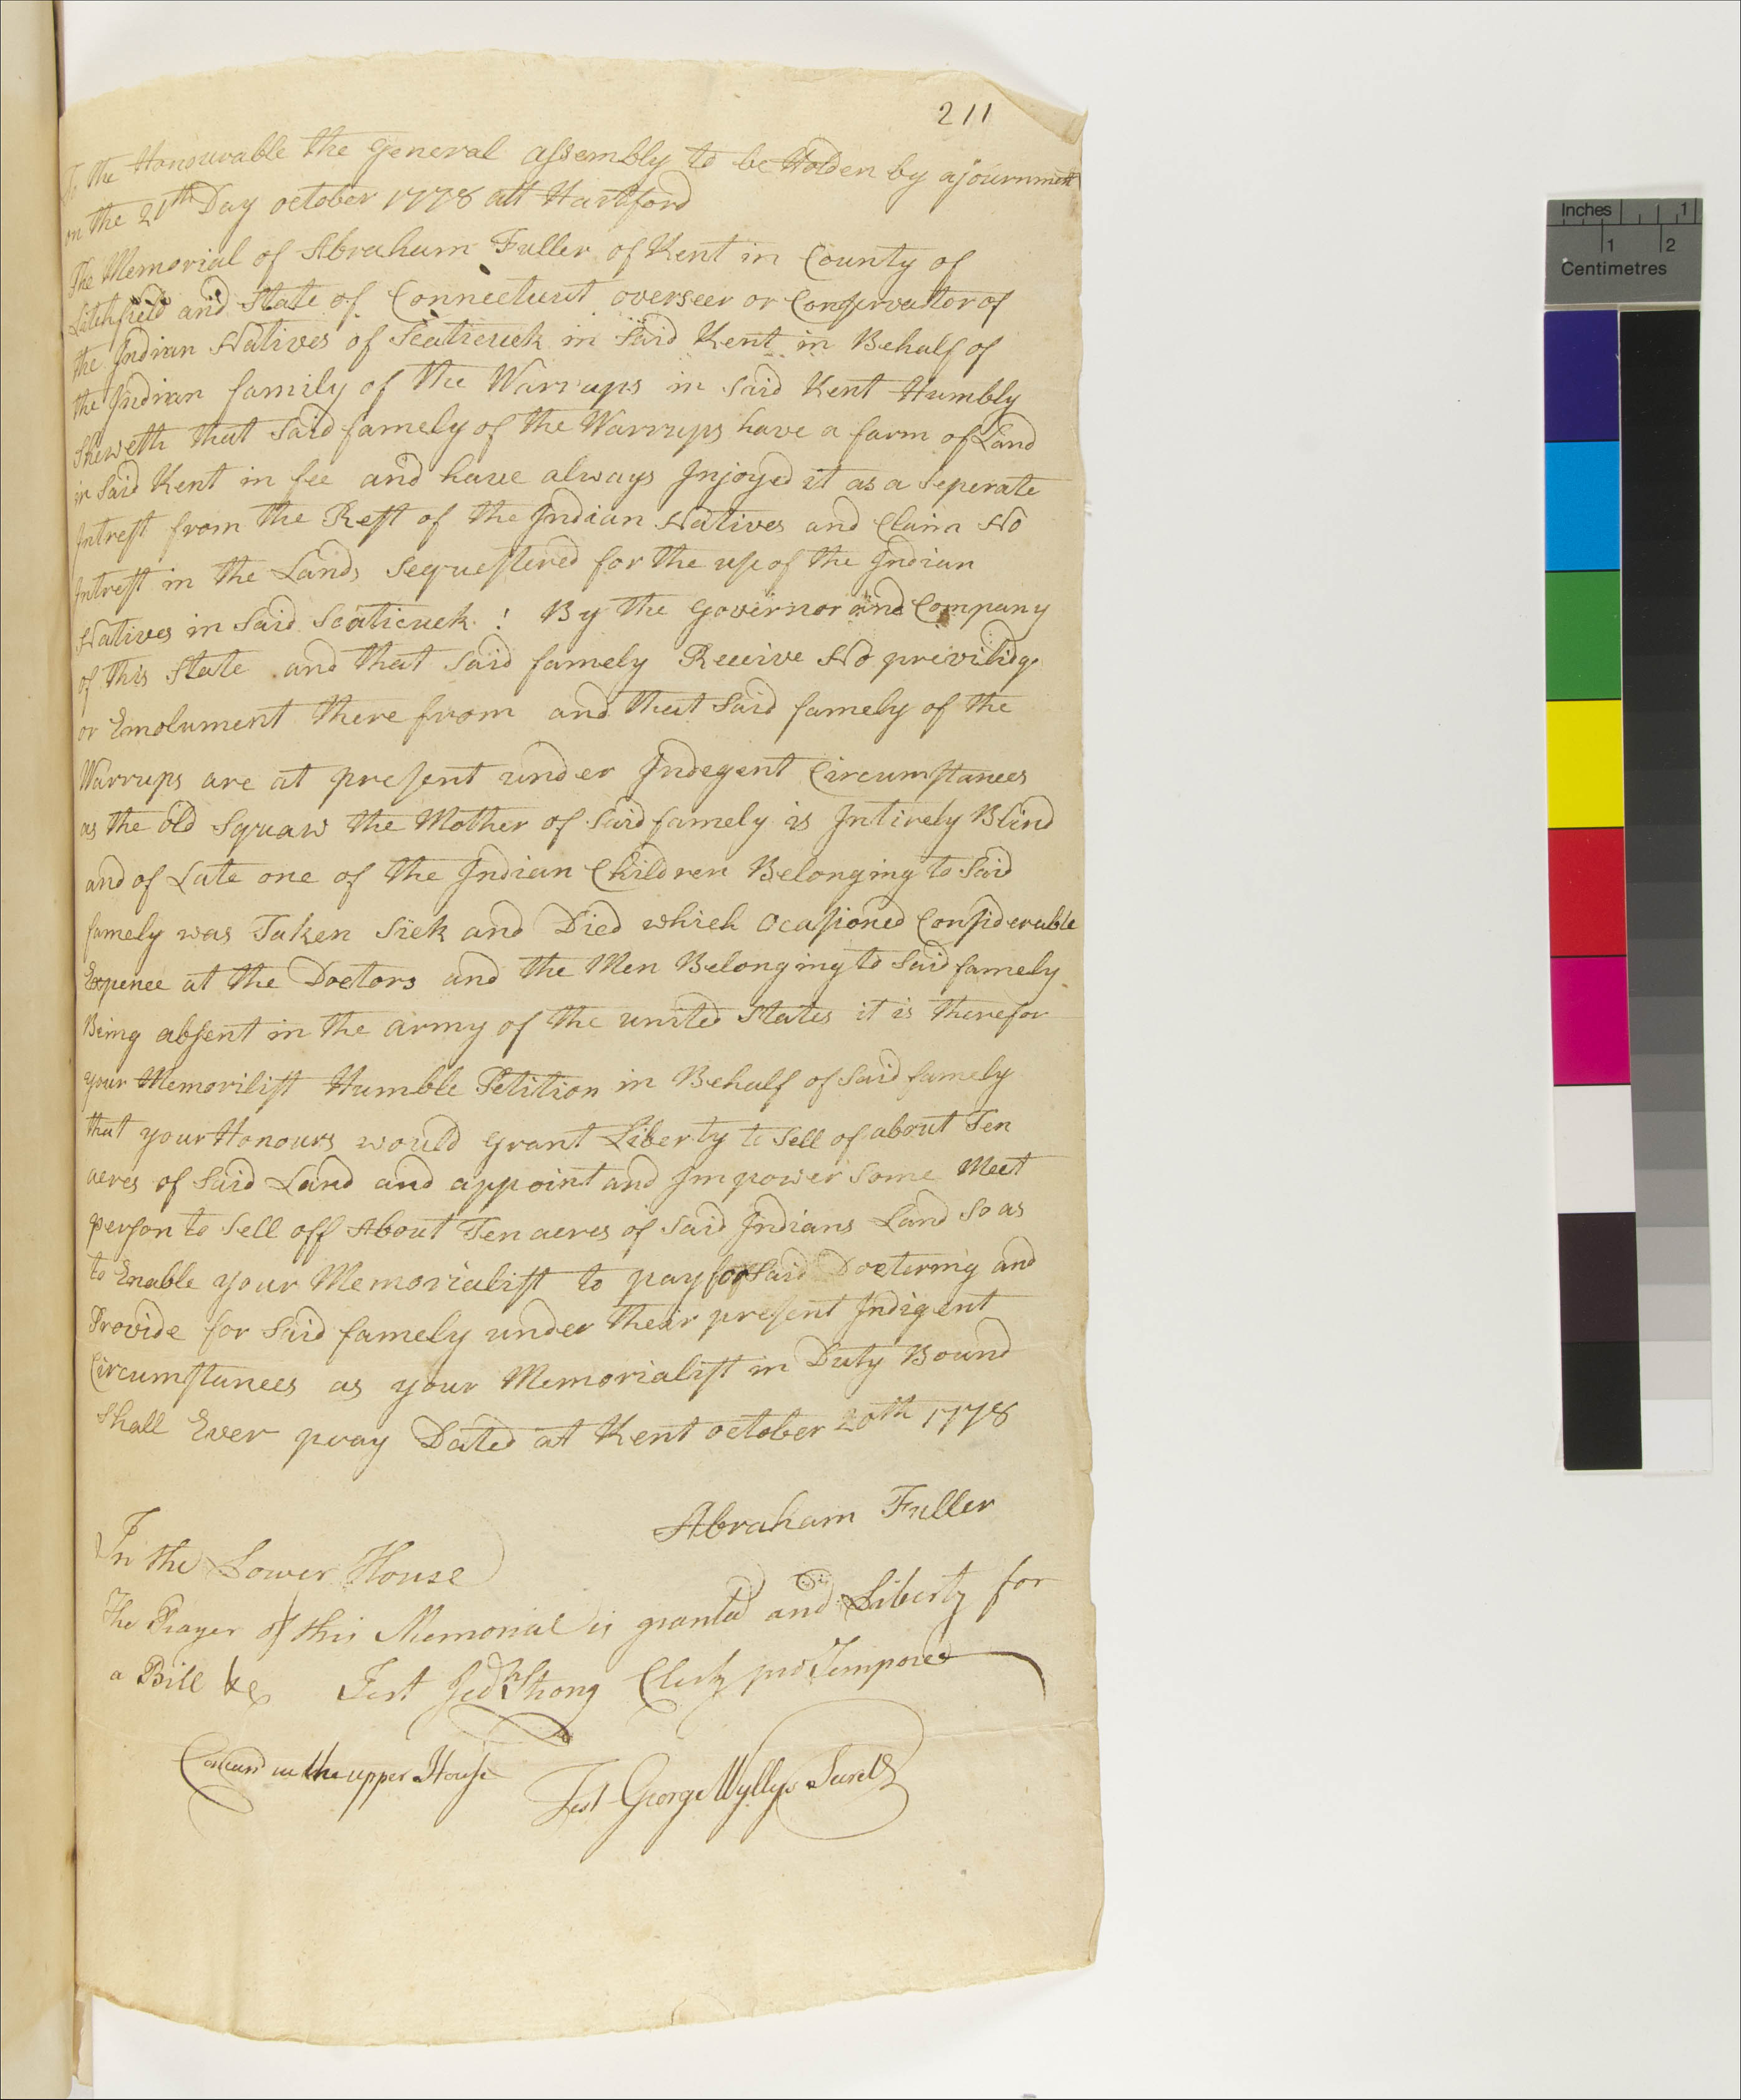 211
To the Honourable the General assembly to be Holden by ajournment
on the 21th Day october 1778 att Hartford
The Memorial of Abraham Fuller of Kent in County of
Litchfield and State of Connecticut overseer or Conservator of
the Indian Natives of Scaticuck in Said Kent in Behalf of
the Indian family of the Warrups in Said Kent Humbly
Sheweth that Said famely of the Warrups have a farm of Land
in Said Kent in fee and have always Injoyed it as a Seperate
Intrest from the Rest of the Indian Natives and Claim No
Intrest in the Lands Sequestered for the use of the Indian
Natives in Said Scaticuck : By the Governor and Company
of this State and that Said famely Receive No previlidge
or Emolument there from and that Said famely of the
Warrups are at present under Indegent Circumstances
as the old Squaw the Mother of Said famely is Intirely Blind
and of Late one of the Indian Children Belonging to Said
famely was Taken Sick and Died which ocasioned Considerable
Expence at the Doctors and the Men Belonging to Said famely
Being absent in the army of the united States it is therefor
your Memorilist Humble Petition in Behalf of Said famely
that your Honours would grant Liberty to Sell of about Ten
acres of Said Land and appoint and Impower Some Meet
person to Sell off About Ten acres of Said Indians Land So as
to Enable your Memorialist to pay for Said Doctering and
Provide for Said famely under their present Indigent
Circumstances as your Memorialist in Duty Bound
Shall Ever pray Dated at Kent october 20th 1778
Abraham Fuller
In the Lower House
The Prayer of this Memorial is granted and Liberty for
a Bill &c Test Jedh Strong Clerk pro Tempore
Concurd in the upper House
Test George Wyllys Secrety
Inches 1
1 2
Centimetres